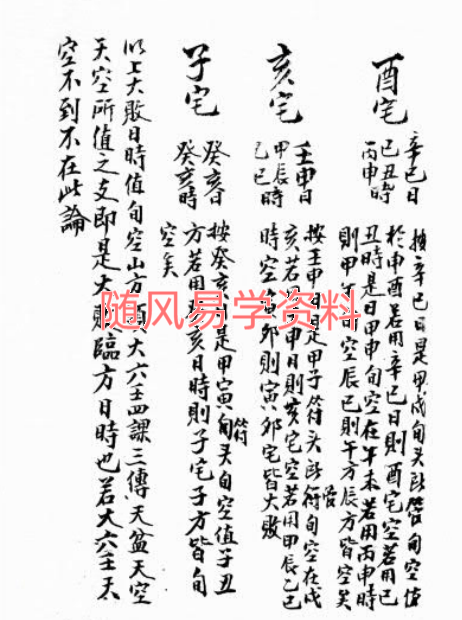 酉宅
辛巳日
己丑時
丙申時
按辛巳日是甲戌旬头所管旬空值
於申酉若用辛巳日則酉宅空若用己
丑時是日甲申旬空在午未若用丙申時
則甲午旬空辰巳則午方辰方皆空矣
亥宅
壬申日
甲辰時
己巳
按壬申日是甲子符头所管旬空在戌
亥若用壬申日則亥宅空若用甲辰乙巳
時空寅卯則寅卯宅皆大敗
子宅
癸亥日
癸亥時
按癸亥日是甲寅符头旬空值子丑
方若用癸亥日時則子宅子方皆旬
空矣
以上大敗日時值旬空山方須大六壬四課三傳天盆天空
天空所值之支即是大敗臨方日時也若大六壬天
空不到不在此論
随风易学资料